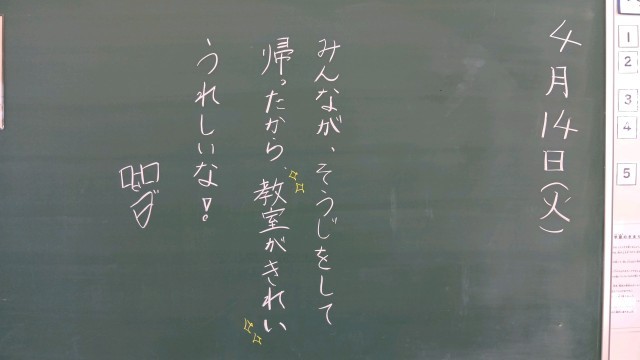 4月14日(火)
みんなが、そうじをして
帰ったから、教室がきれい
うれしいな!
1
2
3
4
5